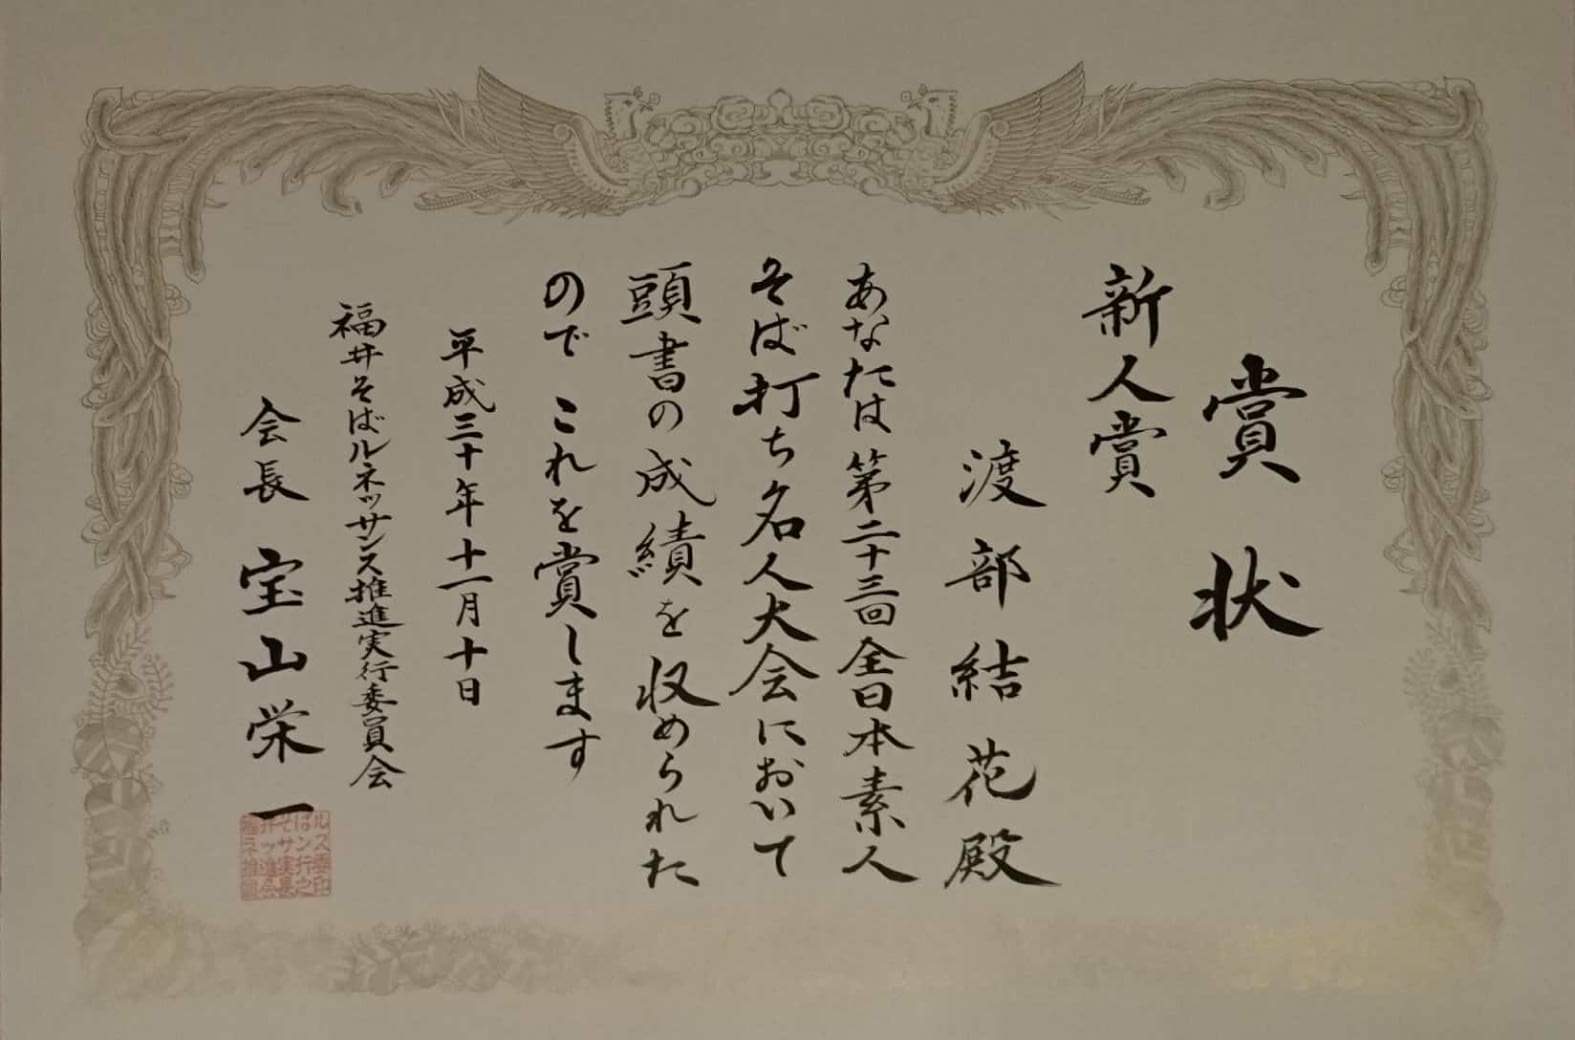 賞状
新人賞
渡部結花殿
あなたは第二十三回全日本素人
そば打ち名人大会において
頭書の成績を収められた
のでこれを賞します
平成三十年十一月十日
福井そばルネッサンス推進実行委員会
会長 宝山栄一